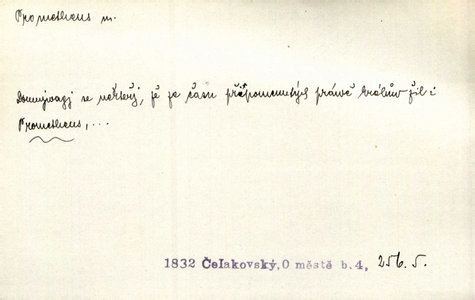 Prometheus m.
Domnjwagj se někteřj, že za času připomenutých právě králůw žil i
Prometheus, ...
1832 Čelakovský, O městě b. 4, 256. 5.